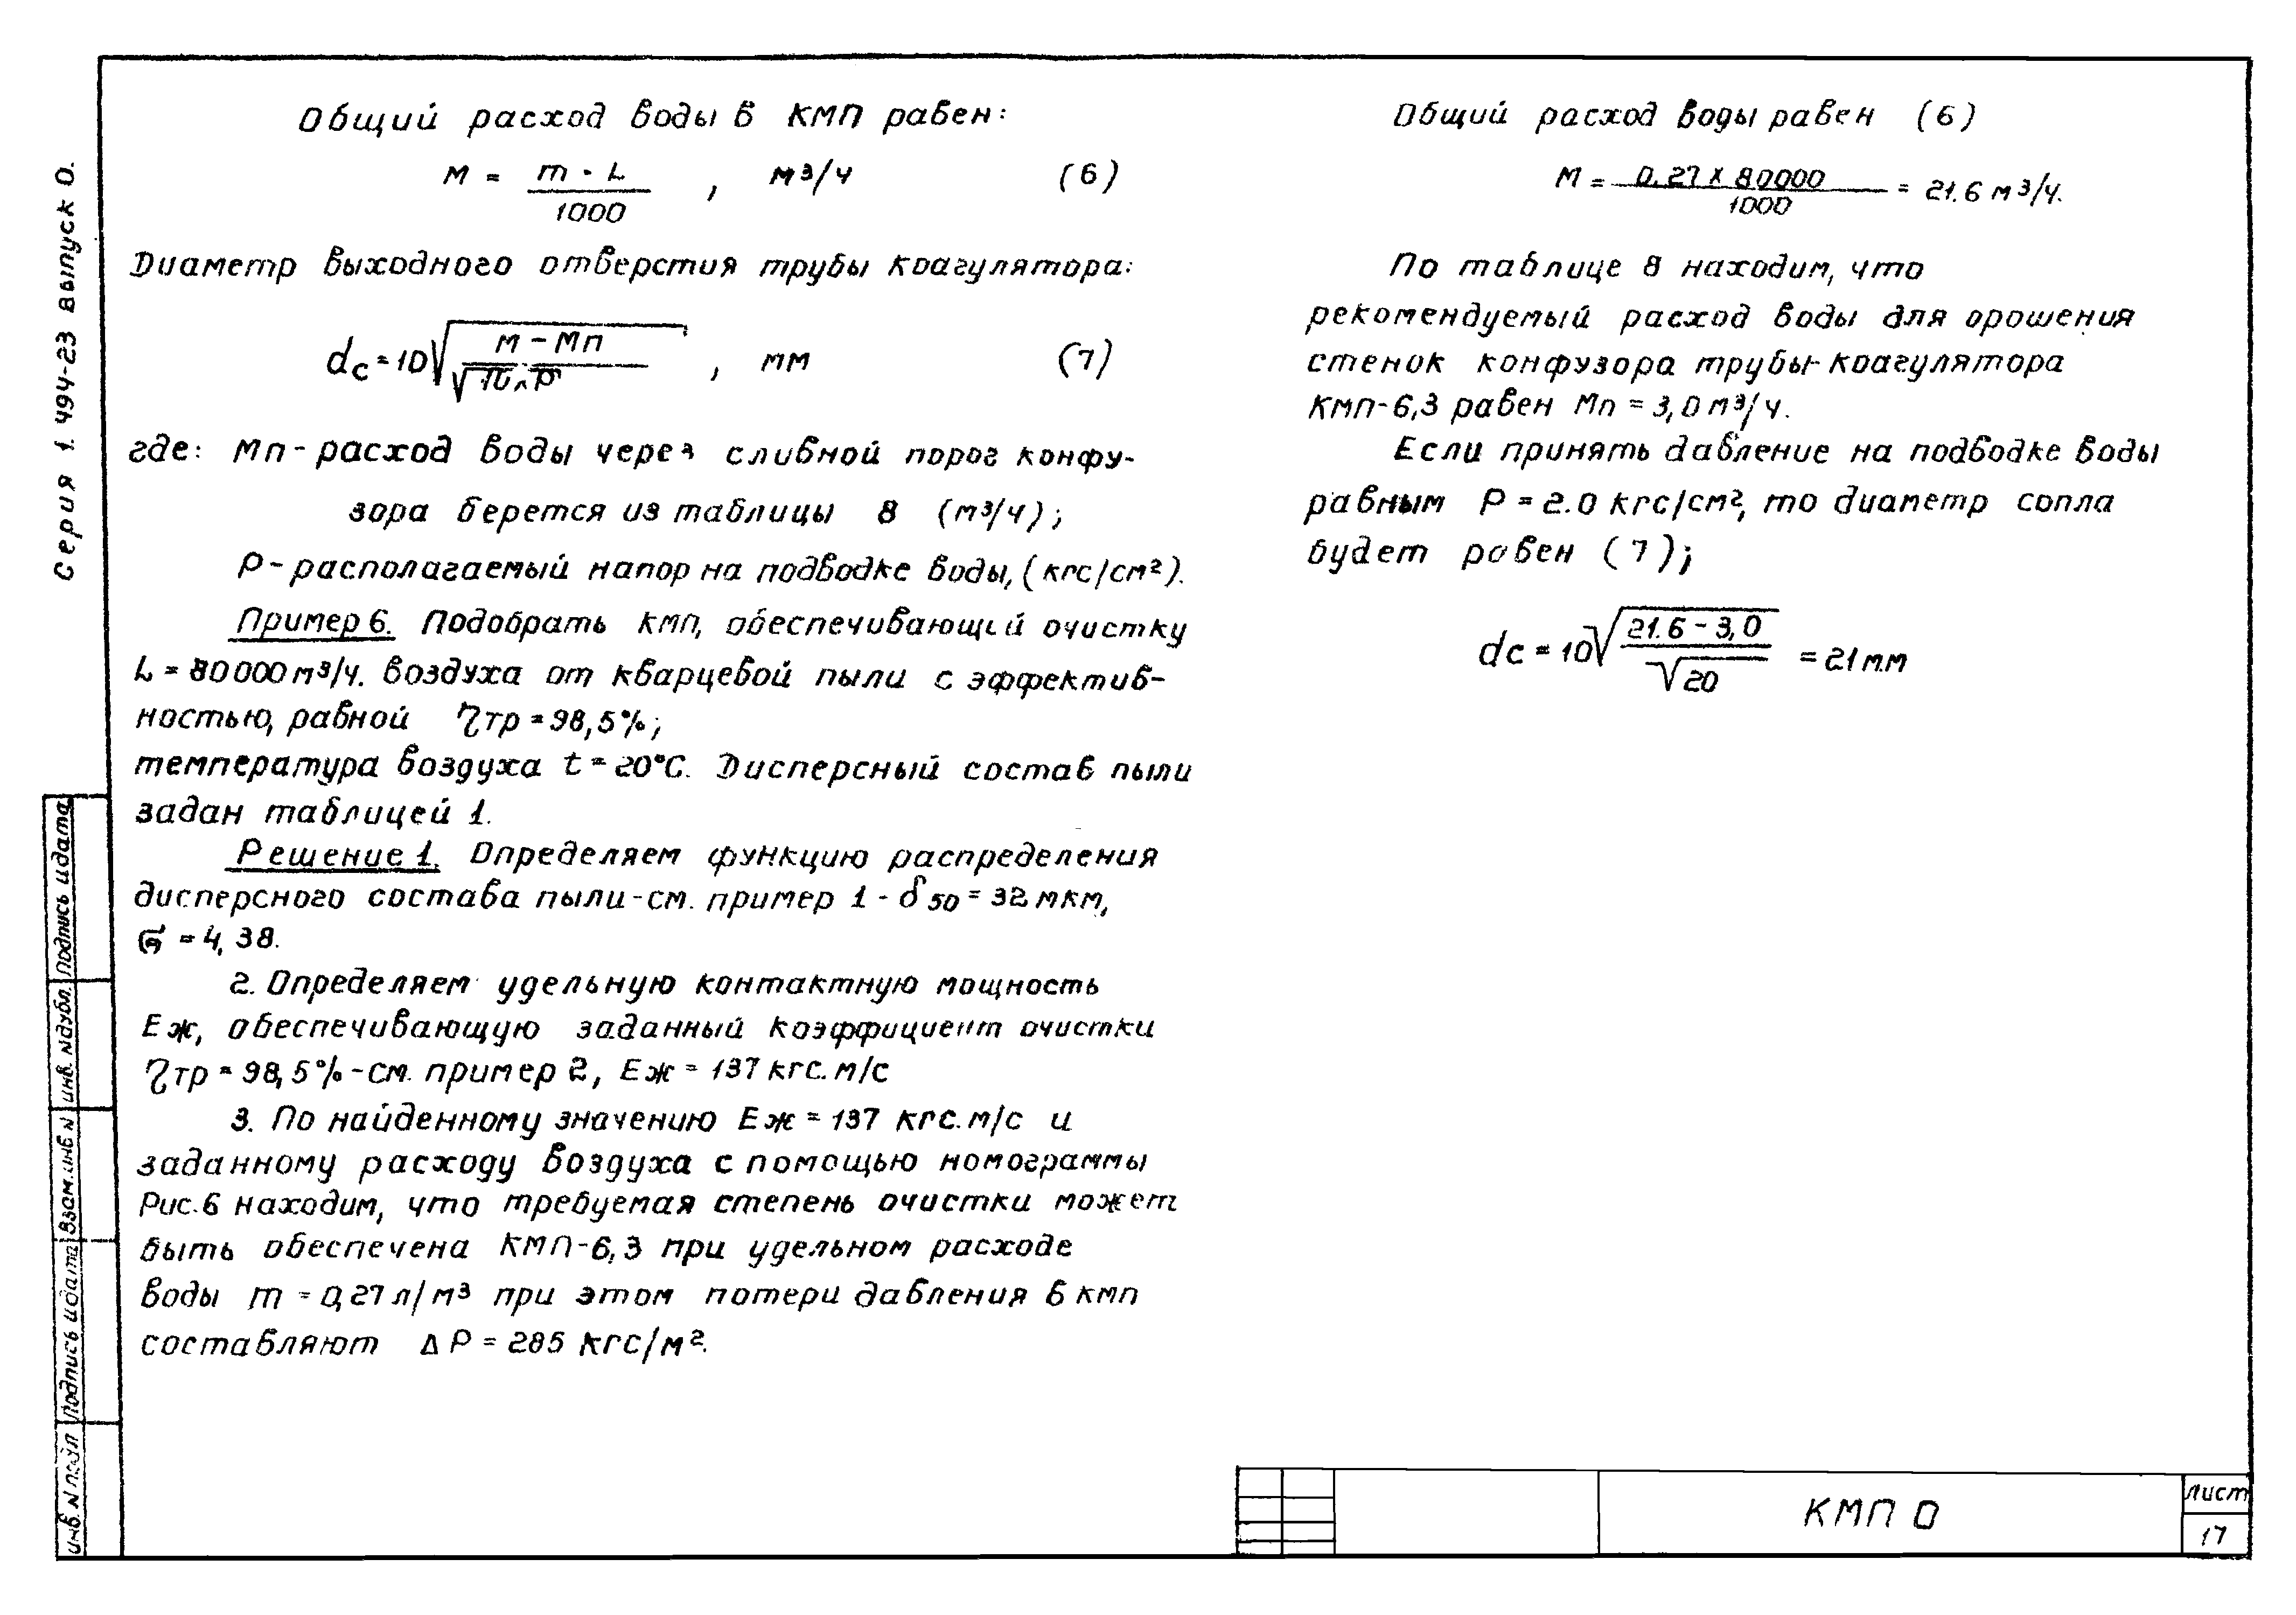 Серия 1.494-23 выпуск 0.
Общий расход воды в КМП равен:
М = m · L / 1000 , м³/ч (6)
Диаметр выходного отверстия трубы коагулятора:
dc = 10√((М – Мп) / √P) , мм (7)
где: Мп - расход воды через сливной порог конфу-
зора берется из таблицы 8 (м³/ч);
Р - располагаемый напор на подводке воды, (кгс/см²).
Пример 6. Подобрать КМП, обеспечивающий очистку
L = 80000 м³/ч. воздуха от кварцевой пыли с эффектив-
ностью, равной ητр = 98,5%;
температура воздуха t = 20°С. Дисперсный состав пыли
задан таблицей 1.
Решение 1. Определяем функцию распределения
дисперсного состава пыли - см. пример 1 - δ50 = 32 мкм,
σ = 4,38.
2. Определяем удельную контактную мощность
Еж, обеспечивающую заданный коэффициент очистки
ητр = 98,5% - см. пример 2, Еж = 137 кгс.м/с
3. По найденному значению Еж = 137 кгс.м/с и
заданному расходу воздуха с помощью номограммы
Рис.6 находим, что требуемая степень очистки может
быть обеспечена КМП-6,3 при удельном расходе
воды m = 0,27 л/м³ при этом потери давления в КМП
составляют ΔР = 285 кгс/м².
Общий расход воды равен (6)
М = 0.27 х 80000 / 1000 = 21.6 м³/ч.
По таблице 8 находим, что
рекомендуемый расход воды для орошения
стенок конфузора трубы-коагулятора
КМП-6,3 равен Мп = 3,0 м³/ч.
Если принять давление на подводке воды
равным Р = 2.0 кгс/см², то диаметр сопла
будет равен (7);
dc = 10√((21.6 - 3,0) / √20) = 21 мм
Подпись и дата
Инв. N дубл.
Взам. инв N
Подпись и дата
Инв. N подл
КМП 0
Лист
17